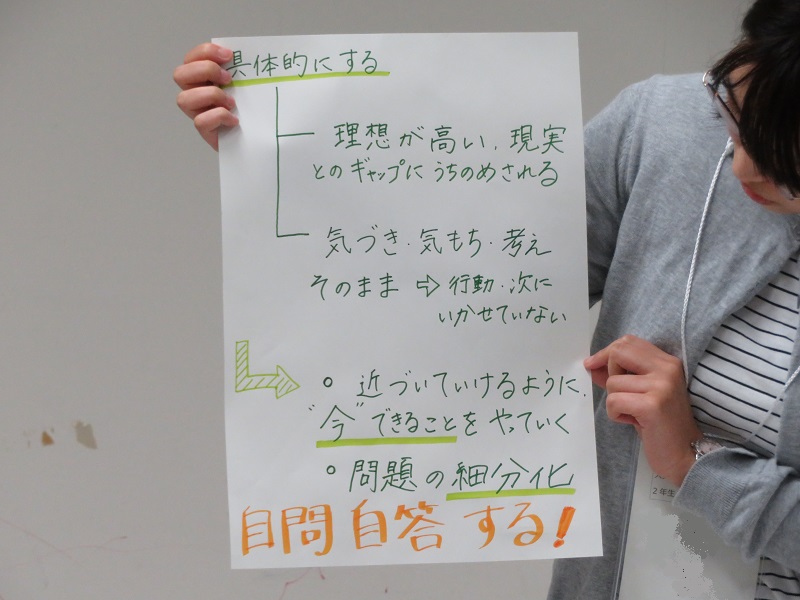 具体的にする
理想が高い、現実
とのギャップにうちのめされる
気づき・気もち・考え
そのまま ⇨ 行動・次に
いかせていない
○ 近づいていけるように、
"今"できることをやっていく
○ 問題の細分化
自問自答する!
2年生